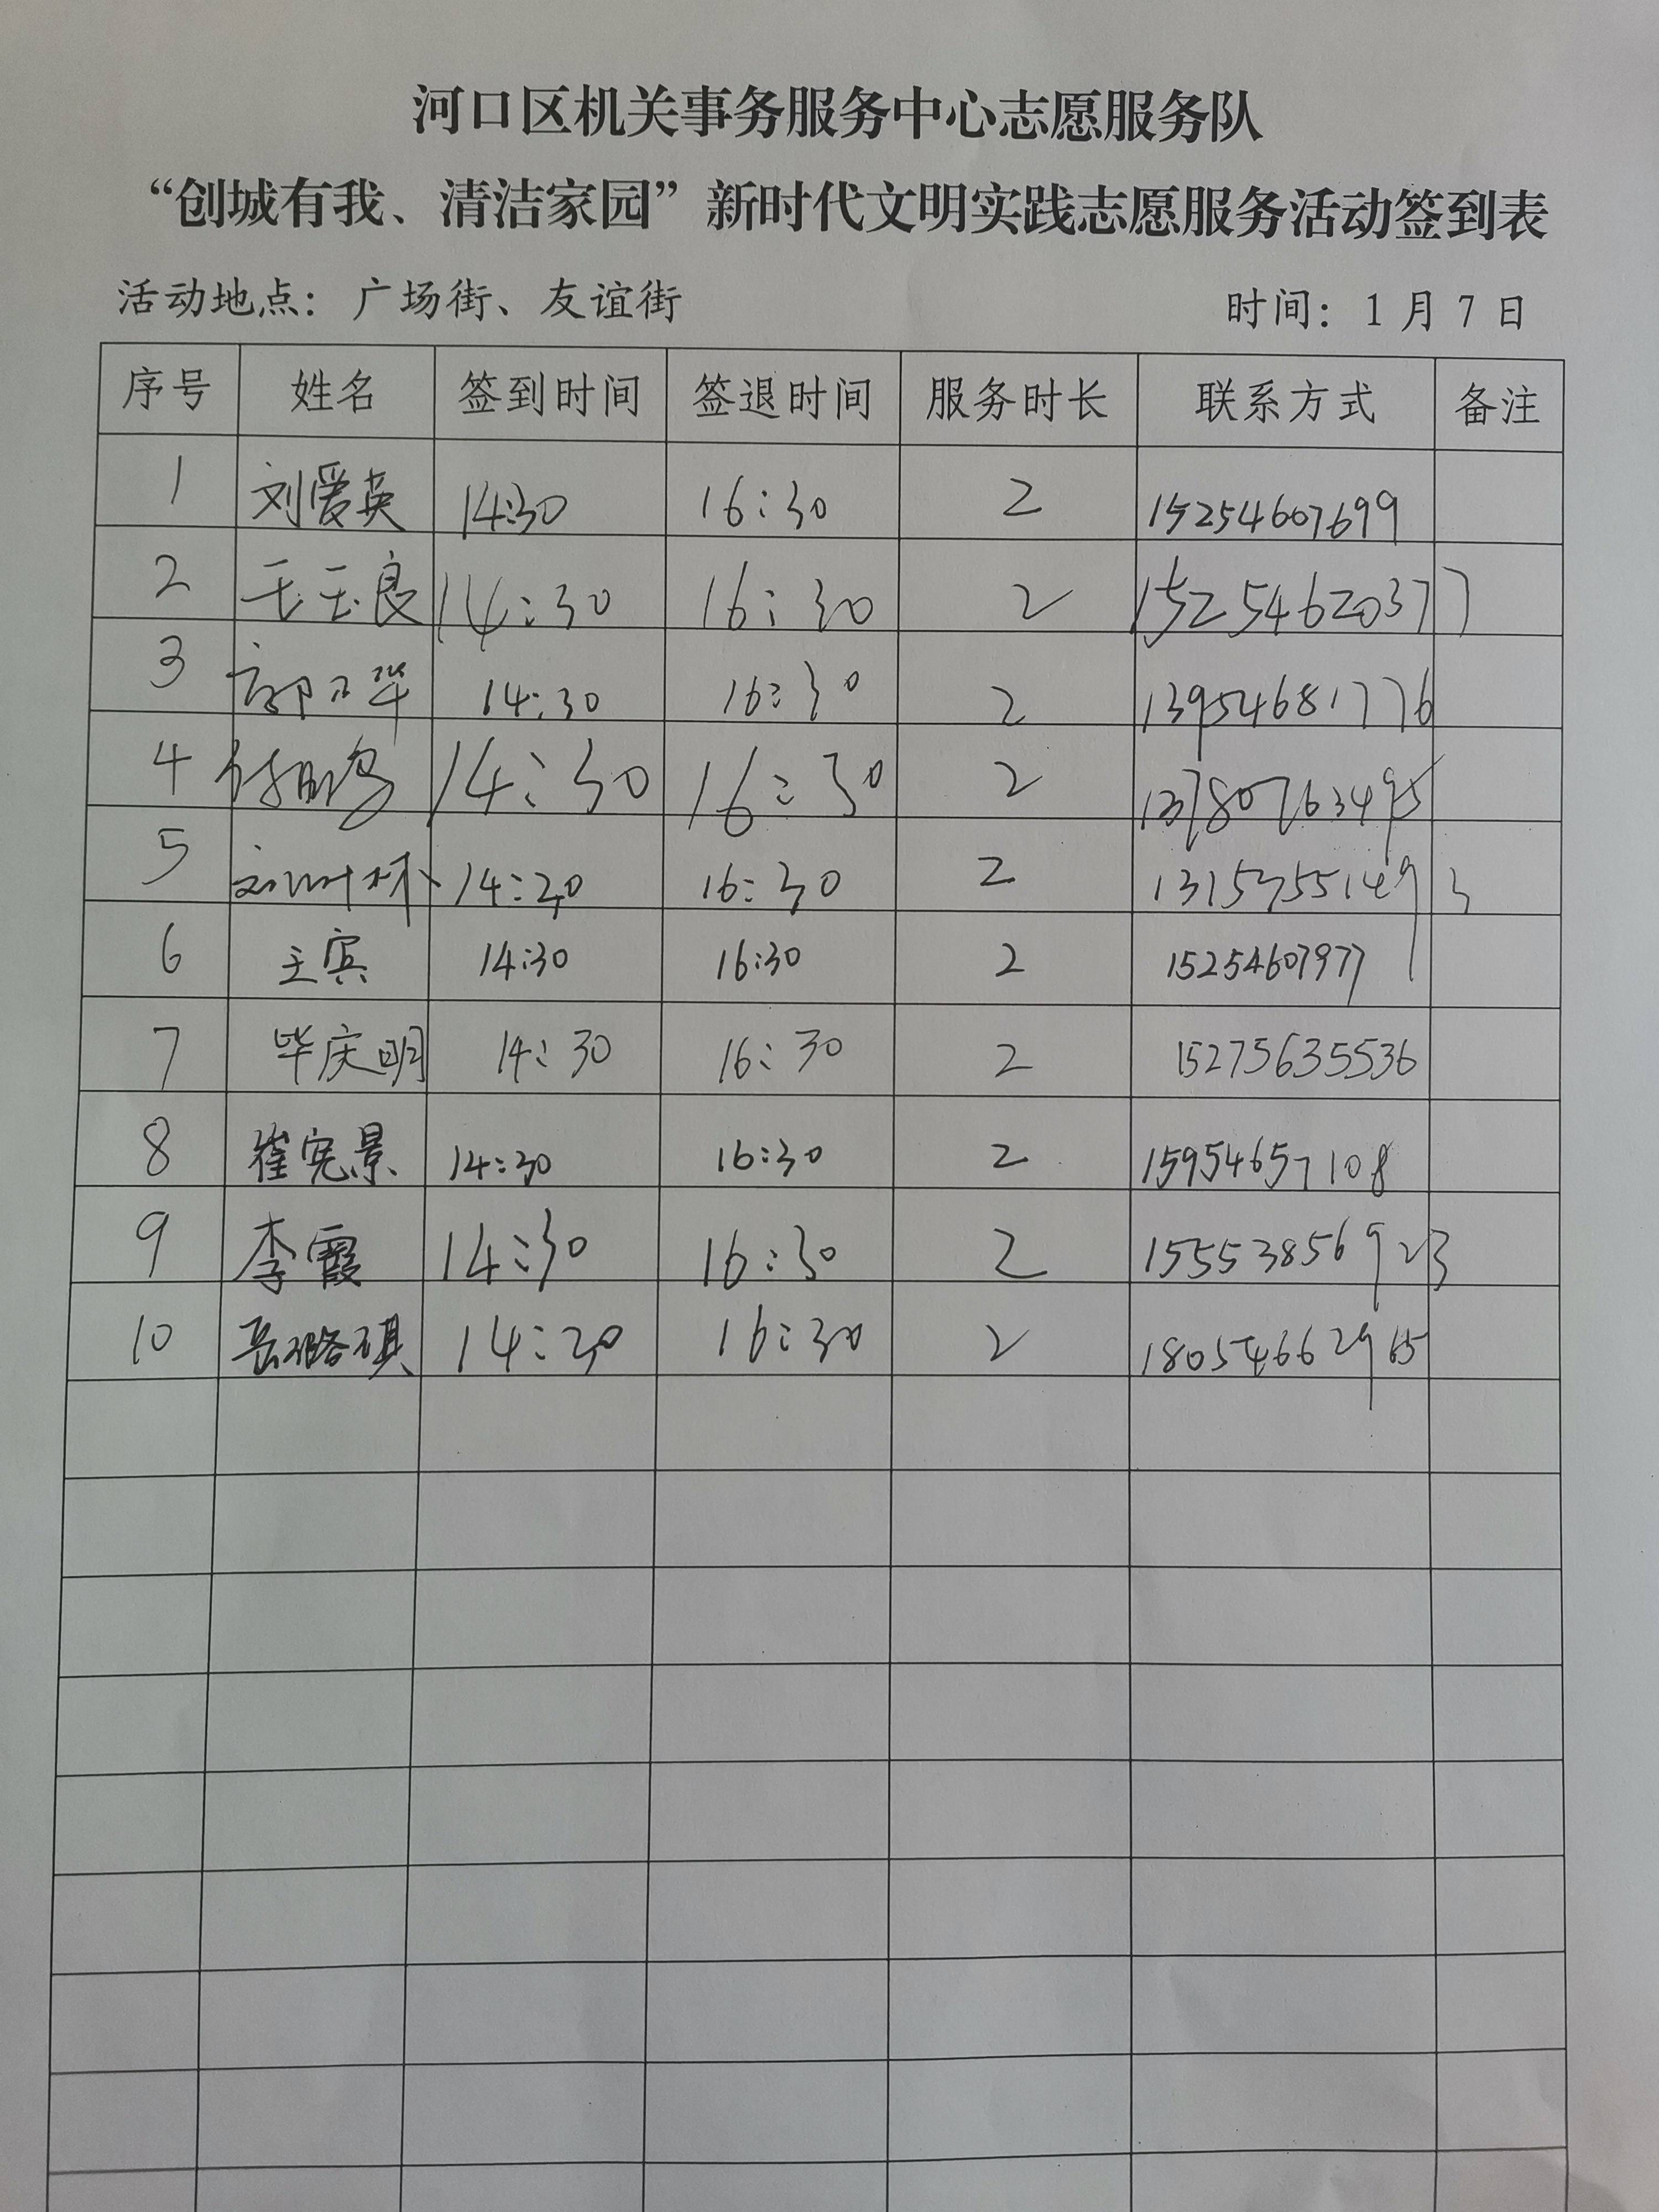 河口区机关事务服务中心志愿服务队
“创城有我、清洁家园”新时代文明实践志愿服务活动签到表
活动地点：广场街、友谊街 时间：1月7日
序号 姓名 签到时间 签退时间 服务时长 联系方式 备注
1 刘爱英 14:30 16:30 2 15254607699
2 王玉良 14:30 16:30 2 15254620377
3 郭卫华 14:30 16:30 2 13954681776
4 14:30 16:30 2 13780763495
5 14:30 16:30 2
6 王宾 14:30 16:30 2 15254607977
7 毕庆明 14:30 16:30 2 15275635536
8 崔宪景 14:30 16:30 2 15954657108
9 李霞 14:30 16:30 2 15553856923
10 岳璐琪 14:30 16:30 2 18054662965